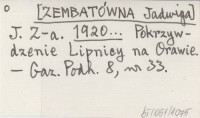 [ZEMBATÓWNA Jadwiga]
J. Z-a. 1920... Pokrzyw-
dzenie Lipnicy na Orawie.
— Gaz. Podh. 8, nr 33.